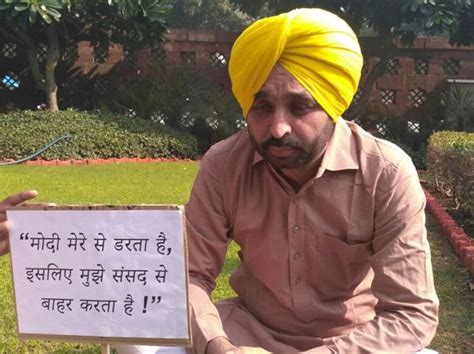 “मोदी मेरे से डरता है,
इसलिए मुझे संसद से
बाहर करता है !”